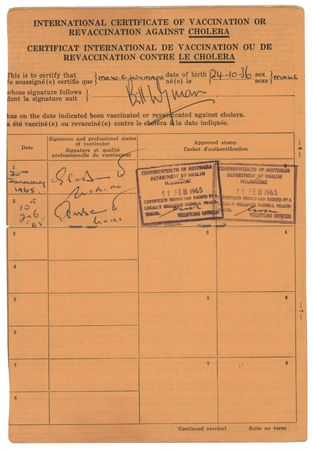 INTERNATIONAL CERTIFICATE OF VACCINATION OR
REVACCINATION AGAINST CHOLERA
CERTIFICAT INTERNATIONAL DE VACCINATION OU DE
REVACCINATION CONTRE LE CHOLERA
This is to certify that date of birth 24-10-36 sex
Je soussigné(e) certifie que né(e) le sexe male
whose signature follows
dont la signature suit Bill Wyman
has on the date indicated been vaccinated or revaccinated against cholera.
a été vacciné(e) ou revacciné(e) contre le choléra à la date indiquée.
Date
Signature and professional status of vaccinator
Signature et qualité professionnelle du vaccinateur
Approved stamp
Cachet d'authentification
1
30th
January
1965
COMMONWEALTH OF AUSTRALIA
DEPARTMENT OF HEALTH
MELBOURNE
11 FEB 1965
CERTIFICATE SIGNED AND STAMPED BY A
LOCALLY QUALIFIED MEDICAL PRACTITIONER.
VERIFYING OFFICER
COMMONWEALTH OF AUSTRALIA
DEPARTMENT OF HEALTH
MELBOURNE
11 FEB 1965
CERTIFICATE SIGNED AND STAMPED BY A
LOCALLY QUALIFIED MEDICAL PRACTITIONER.
VERIFYING OFFICER
2
10th
Feb
65
3
3
4
4
5
5
6
6
7
7
8
8
Continued overleaf
Suite au verso